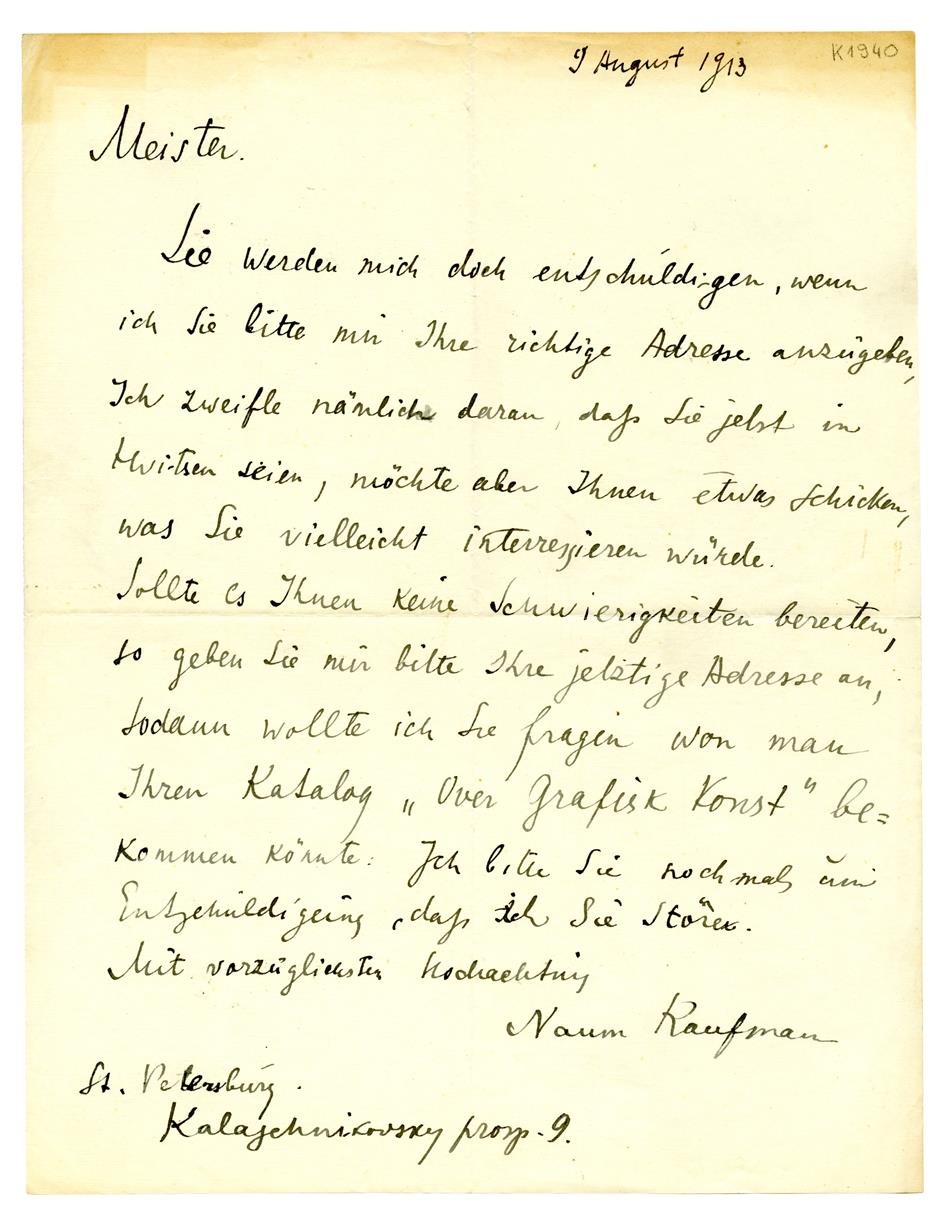 9 August 1913
K1940
Meister.
Sie werden mich doch entschúldigen, wenn
ich Sie bitte mir Ihre richtige Adresse anzúgeben,
Ich zweifle nämlich daran, daß Sie jetzt in
Hvitsen seien, möchte aber Ihnen etwas schicken,
was Sie vielleicht interressieren würde.
Sollte es Ihnen keine Schwierigkeiten bereiten,
so geben Sie mir bitte Ihre jetztige Adresse an,
sodann wollte ich Sie fragen won man
Ihren Katalog „Over Grafisk Konst" be=
kommen könnte. Ich bitte Sie nochmals úm
Entschúldigúng, daß ich Sie störe.
Mit vorzüglichsten Hochachtúng
Naum Kaufman
St. Petersbúrg.
Kalaschnikovsky prosp. 9.